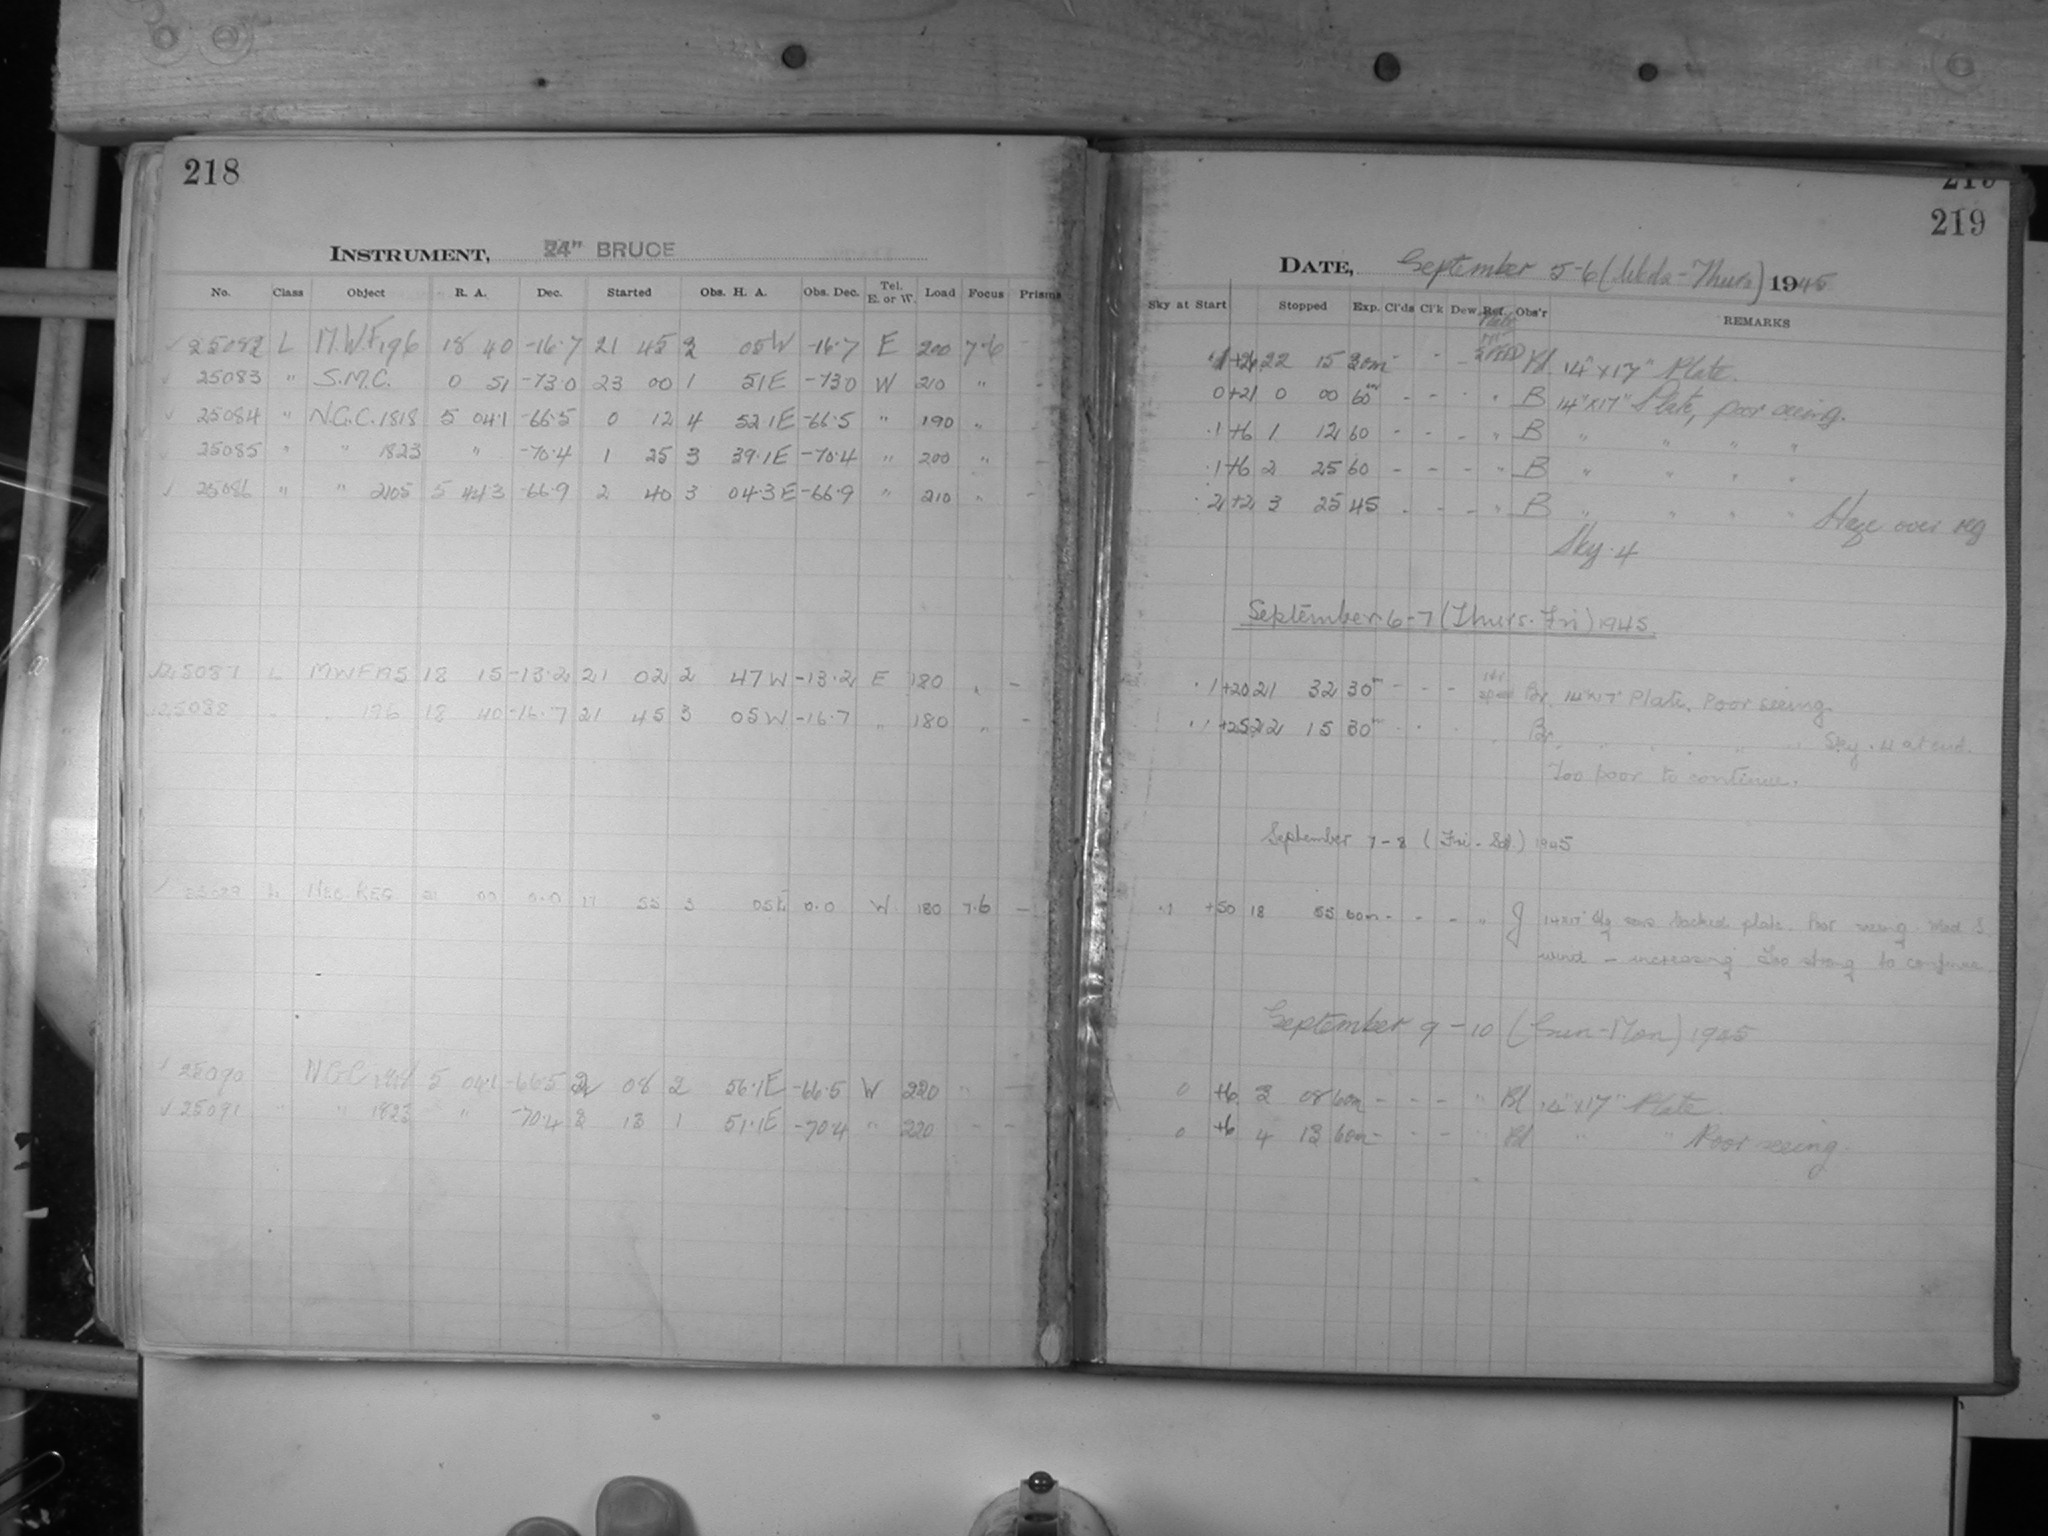 218
INSTRUMENT, 24" BRUCE
No. Class Object R. A. Dec. Started Obs. H. A. Obs. Dec. Tel. E. or W. Load Focus Prisms
✓ 25082 L M.W.F 196 18 40 -16.7 21 45 3 05W -16.7 E 200 7.6 -
✓ 25083 " S.M.C. 0 51 -73.0 23 00 1 51E -73.0 W 210 " -
✓ 25084 " N.G.C. 1818 5 04.1 -66.5 0 12 4 52.1E -66.5 " 190 "
25085 " " 1823 " -70.4 1 25 3 39.1E -70.4 " 200 " -
✓ 25086 " " 2105 5 44.3 -66.9 2 40 3 04.3E -66.9 " 210 " -
25087 L MWF 195 18 15 -13.2 21 02 2 47W -13.2 E 180 " -
25088 " " 196 18 40 -16.7 21 45 3 05W -16.7 " 180 " -
✓ 25089 L 21 00 0.0 17 55 3 05E 0.0 W 180 7.6 -
✓ 25090 N.G.C. 1818 5 04.1 -66.5 2 08 2 56.1E -66.5 W 220 " -
✓ 25091 " " 1823 " -70.4 3 13 1 51.1E -70.4 " 220 - -
219
219
DATE, September 5-6 (Weds-Thurs) 1945
Sky at Start Stopped Exp. Cl'ds Cl'k Dew Ref. Obs'r REMARKS
Plate
.1 +26 22 15 30m - - - Bl 14"x17" Plate.
0 +21 0 00 60m - - - " B 14"x17" Plate, poor seeing.
.1 +6 1 12 60 - - - " B " " " "
.1 +6 2 25 60 - - - " B " " " "
.2 +2 3 25 45 - - - " B " " " " Haze over reg
Sky .4
September 6-7 (Thurs-Fri) 1945
.1 +20 21 32 30m - - - Br 14"x17" Plate. Poor seeing.
.1 +25 22 15 30m - - - Br " " " " Sky .4 at end.
Too poor to continue.
September 7-8 (Fri-Sat.) 1945
.1 +50 18 55 60m - - - " J 14x17" backed plate. Poor seeing. Med S
wind - increasing Too strong to continue
September 9-10 (Sun-Mon) 1945
0 +6 3 08 60m - - - " Bl 14"x17" Plate.
0 +6 4 13 60m - - - " Bl " " Poor seeing.